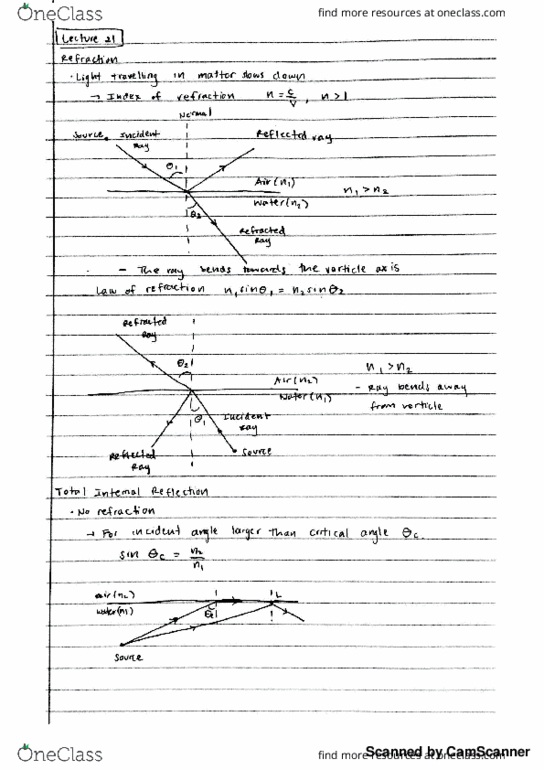 OneClass
find more resources at oneclass.com
Lecture 21
Refraction
· Light travelling in matter slows down
→ Index of refraction n = c/v , n > 1
Normal
Source Incident Ray
Reflected ray
θ1
Air (n1)
n1 > n2
Water (n2)
θ2
Refracted Ray
- The ray bends towards the verticle axis
Law of refraction n1 sinθ1 = n2 sinθ2
Refracted Ray
θ2
n1 > n2
Air (n2)
- Ray bends away
Water (n1)
from verticle
θ1
Incident Ray
Reflected Ray
Source
Total Internal Reflection
· No refraction
→ For incident angle larger than critical angle θc
sin θc = n2/n1
air (n2)
water (n1)
θc
Source
OneClass
find more resources at oneclass.com
Scanned by CamScanner